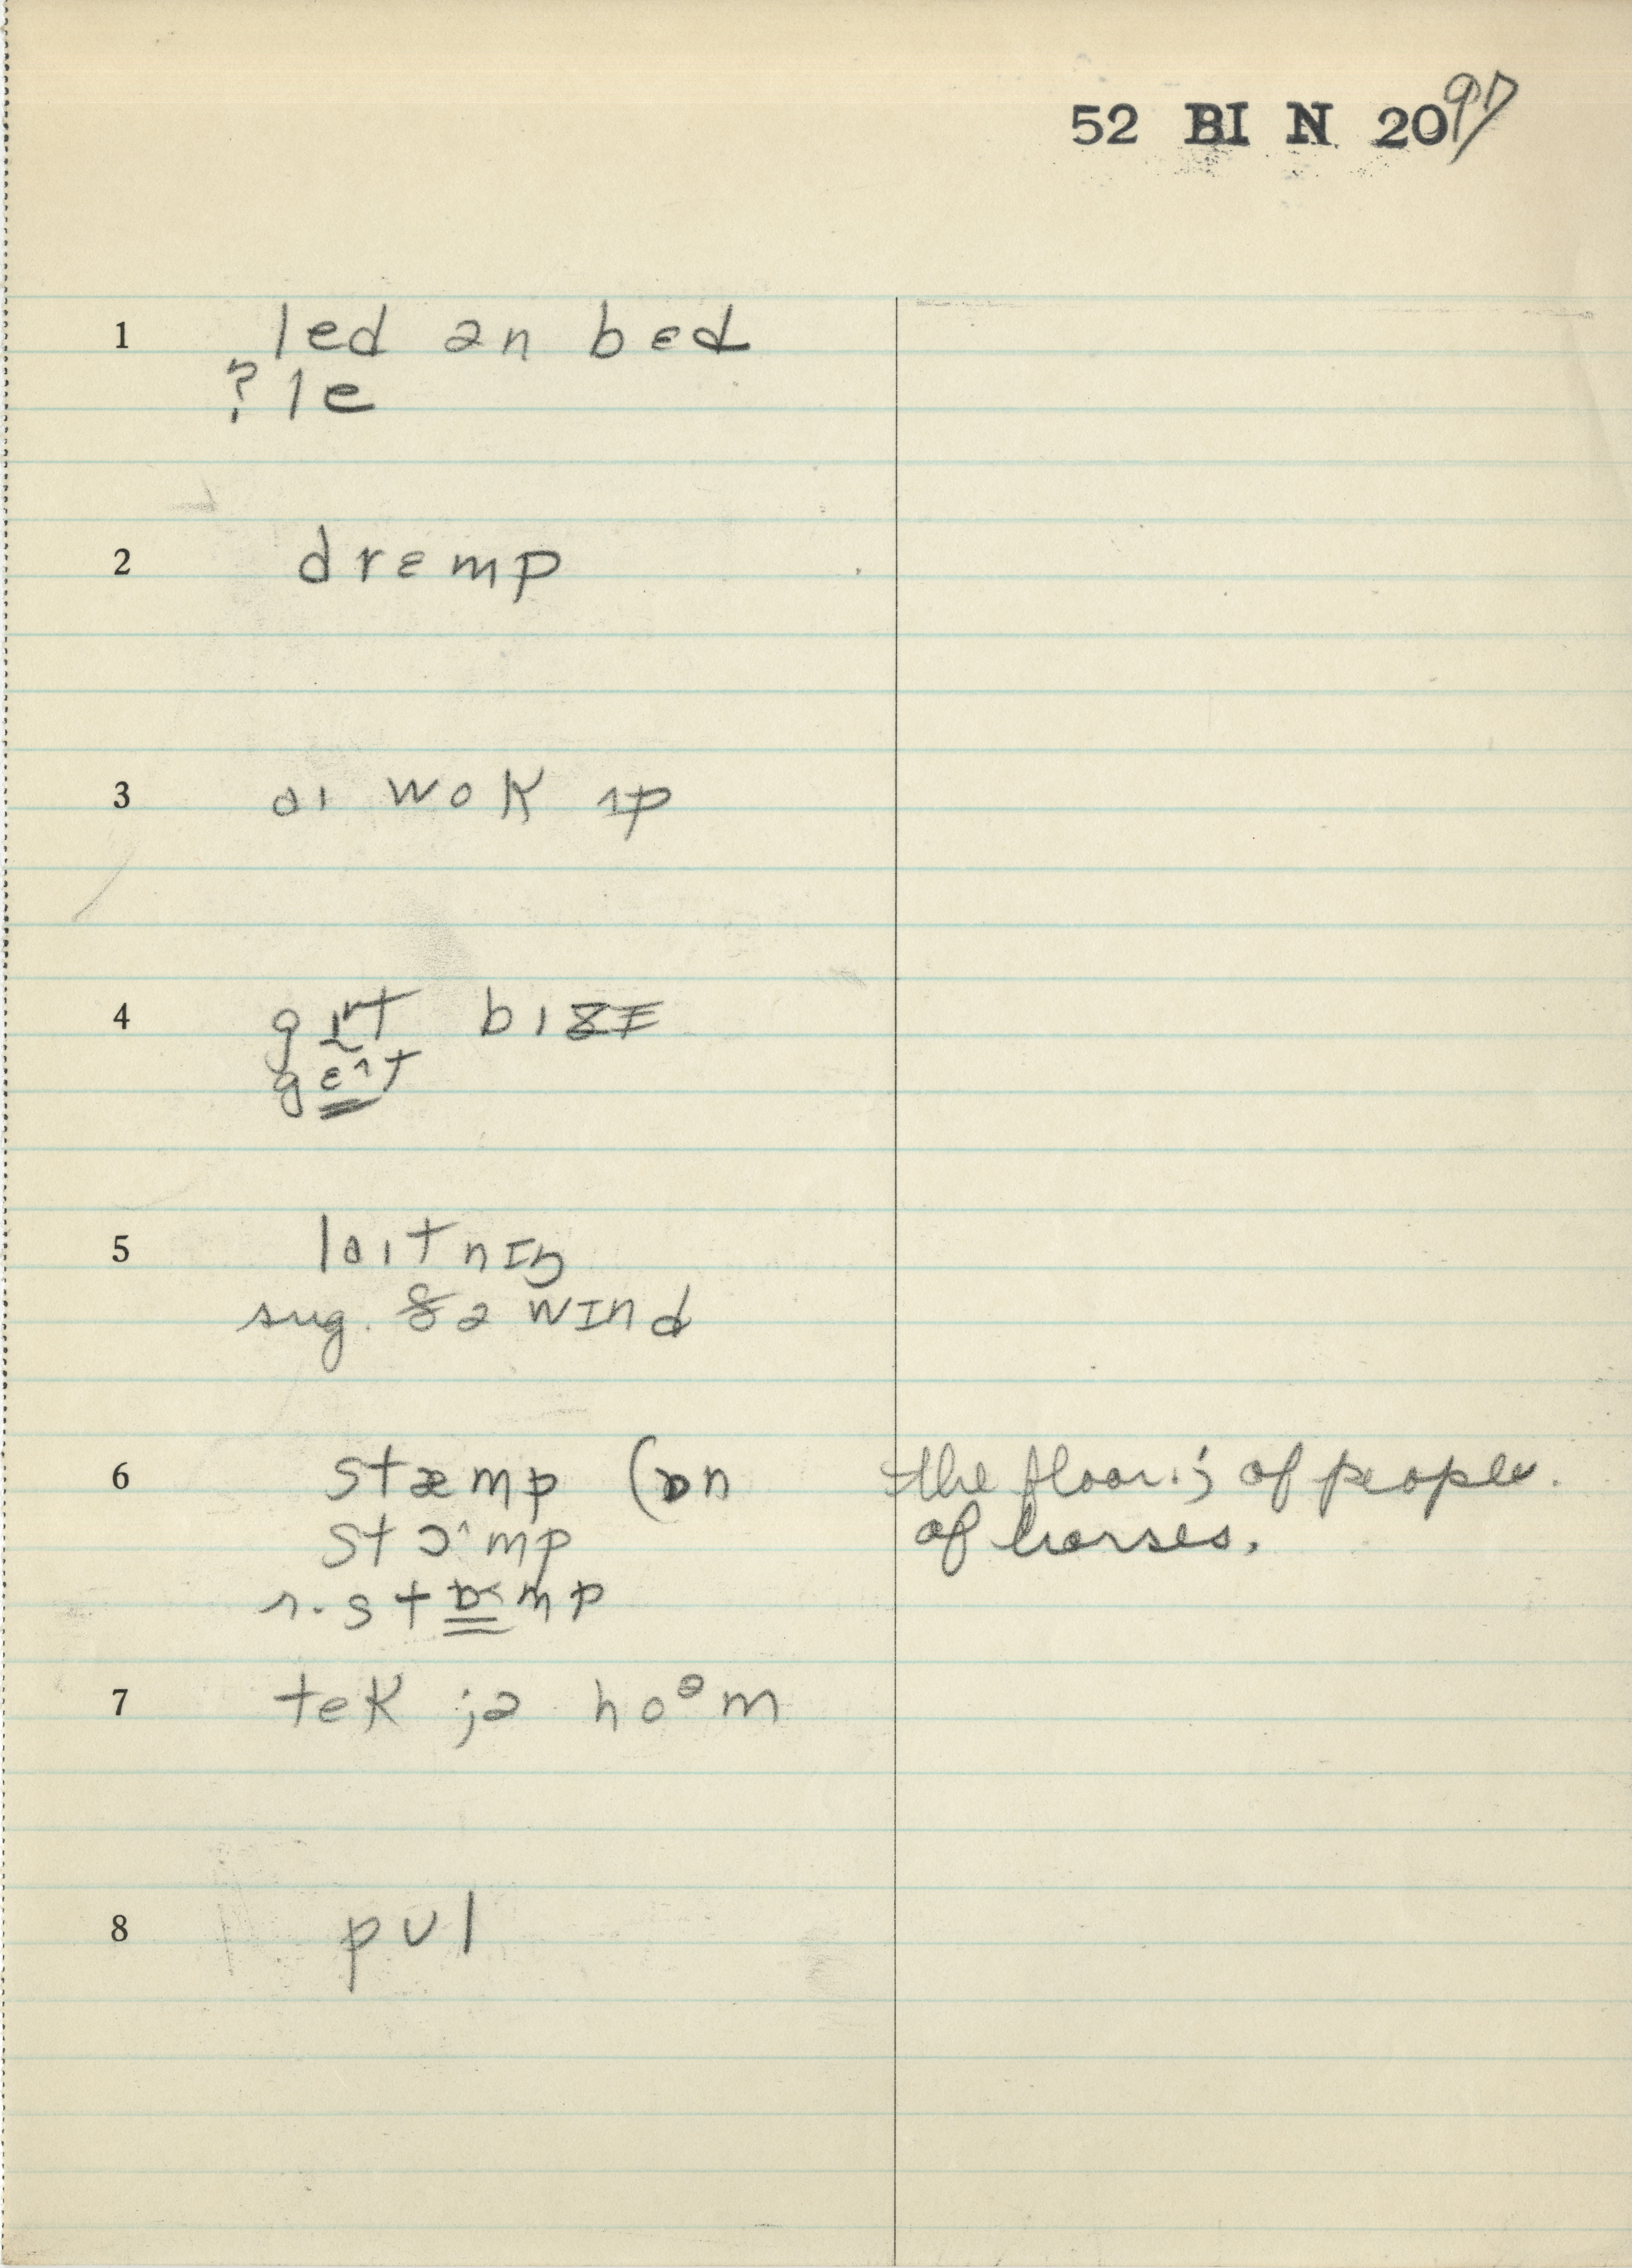 52 BI N 2097
1 led ən bɛd
? le
2 drɛmp
3 aɪ wok ʌp
4 gɪt bɪzɪ
gɛ^t
5 laɪtnɪŋ
sug. ðə wɪnd
6 stæmp (ɒn the floor.; of people.
stɔ^mp of horses.
r. stɒ<mp
7 tek jə hoᵊm
8 pʊl